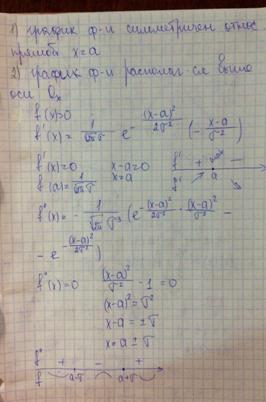 1) график ф-и симметричен относ.
прямой x=a
2) график ф-и располаг ся выше
оси Ox
f(x)>0
f'(x) = 1/(√2π σ) e^(-(x-a)²/2σ²) (-(x-a)/σ²)
f'(x)=0 x-a=0 f' + max -
f(a)= 1/(√2π σ) x=a f a
f''(x) = - 1/(√2π σ³) (e^(-(x-a)²/2σ²) · (x-a)²/σ² -
- e^(-(x-a)²/2σ²))
f''(x)=0 (x-a)²/σ² - 1 = 0
(x-a)² = σ²
x-a = ±σ
x=a ± σ
f'' + - +
f a-σ a+σ